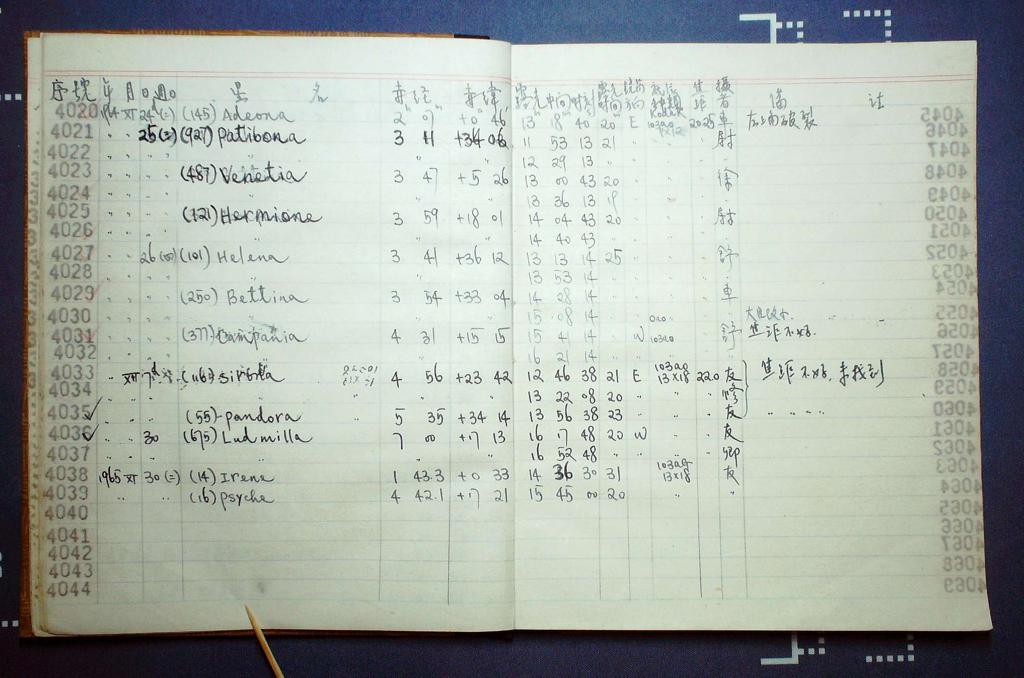 序號 年 月 日 週 星 名 赤經 赤緯 露光中間時刻 露光時間 方向 焦距 攝者 備 註
4020 24 (二) (145) Adeona 2 +0 46 13 18 40 20 E 103a0 20.25 車 左上角破裂 4045
4021 " " 25 (三) (927) Patibona 3 11 +34 06 11 53 13 21 " 尉 4046
4022 " " " " 12 29 13 " 4047
4023 (487) Venetia 3 47 +5 26 13 00 43 20 徐 4048
4024 " " " 13 36 13 19 " 4049
4025 (121) Hermione 3 59 +18 01 14 04 43 20 尉 4050
" " 14 40 43 4051
4027 " " 26 (101) Helena 3 41 +36 12 13 13 14 25 " 舒 4052
4028 " " " 13 53 14 " 4053
4029 " " (250) Bettina 3 54 +33 04 14 28 14 " 車 4054
4030 " " " 15 08 14 4055
4031 " " (377) Campania 4 31 +15 15 15 41 14 W 103a0 舒 焦距不好. 4056
4032 " " 16 21 14 " 4057
4033 " XII 7d (116) Sirona 4 56 +23 42 12 46 38 21 E 103ag 13x18 22.0 友 焦距不好, 未找到 4058
4034 " " 13 22 08 20 " 4059
4035 " " (55) pandora 5 35 +34 14 13 56 38 23 友 " " " 4060
4036 " 30 (675) Ludmilla 7 00 +17 13 16 17 48 20 W " 友 4061
4037 " " 16 52 48 " 卿 4062
4038 1965 30 (二) (14) Irene 1 43.3 +0 33 14 36 30 31 103ag 13x18 友 4063
4039 " " (16) psyche 4 42.1 +17 21 15 45 00 20 " " 4064
4040 4065
4041 4066
4042 4067
4043 4068
4044 4069